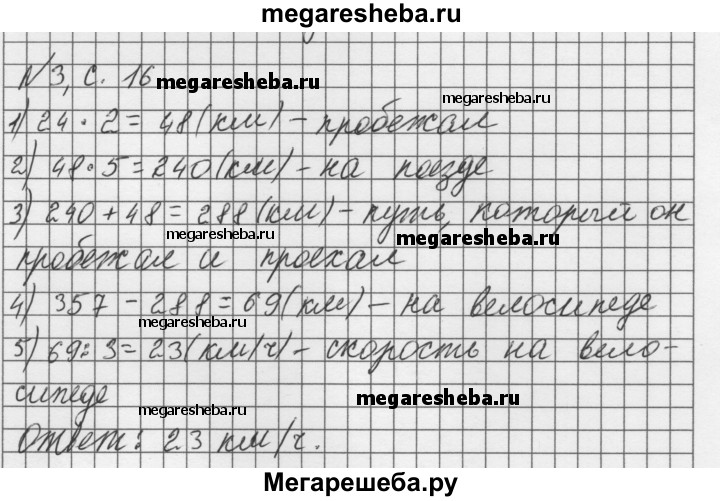 megaresheba.ru
№3, с. 16
megaresheba.ru
megaresheba.ru
1) 24 · 2 = 48 (км) – пробежал
2) 48 · 5 = 240 (км) – на поезде
3) 240 + 48 = 288 (км) – путь, который он
megaresheba.ru
megaresheba.ru
пробежал и проехал
4) 357 – 288 = 69 (км) – на велосипеде
megaresheba.ru
5) 69 : 3 = 23 (км/ч) – скорость на вело-
сипеде
megaresheba.ru
megaresheba.ru
Ответ: 23 км/ч.
Мегарешеба.ру